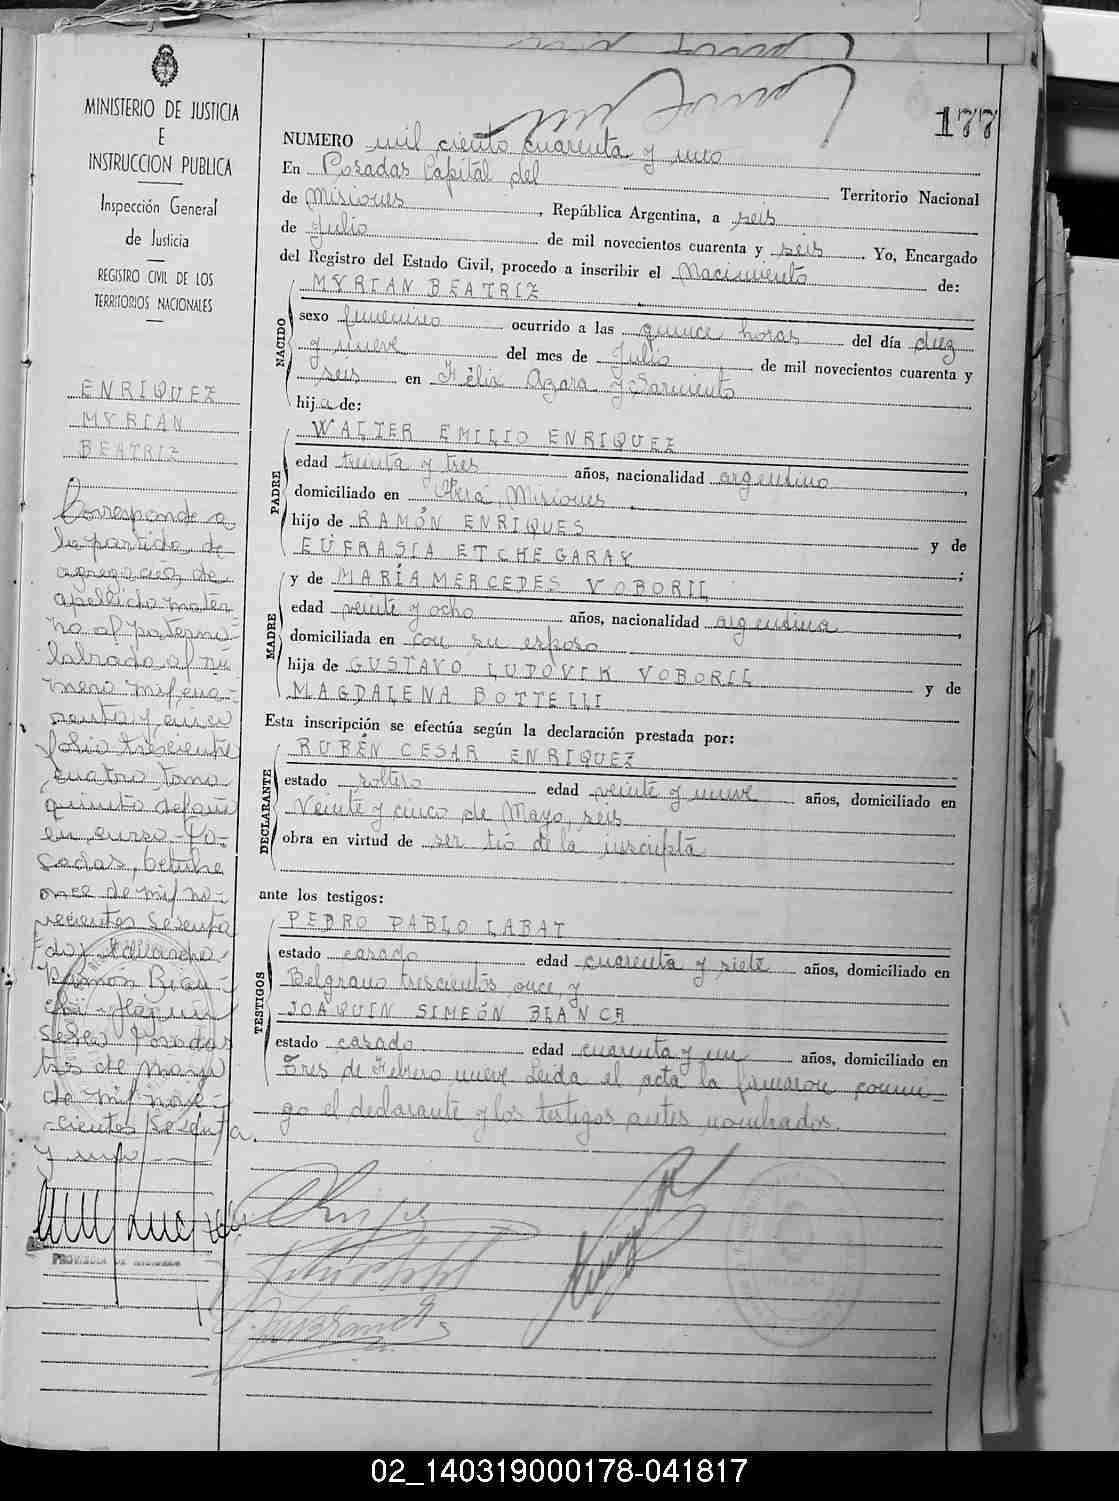 177
MINISTERIO DE JUSTICIA
E
INSTRUCCION PUBLICA
Inspección General
de Justicia
REGISTRO CIVIL DE LOS
TERRITORIOS NACIONALES
ENRIQUEZ
MYRIAN
BEATRIZ
Corresponde a
la partida de
agregación de
apellido mater
no al paterno
labrada al nú
mero mil cua-
renta y cinco
folio trescientos
cuatro tomo
quinto del año
en curso - Po-
sadas, Octubre
once de mil no-
vecientos sesenta
Ramón
Posadas
tres de mayo
de mil nove-
cientos sesenta
y uno
PROVINCIA DE MISIONES
NUMERO mil ciento cuarenta y uno
En Posadas Capital del Territorio Nacional
de Misiones, República Argentina, a seis
de Julio de mil novecientos cuarenta y seis. Yo, Encargado
del Registro del Estado Civil, procedo a inscribir el Nacimiento de:
NACIDO
MYRIAN BEATRIZ
sexo femenino ocurrido a las quince horas del día diez
y nueve del mes de Julio de mil novecientos cuarenta y
seis en Félix Azara y Sarmiento
hija de:
PADRE
WALTER EMILIO ENRIQUEZ
edad treinta y tres años, nacionalidad argentino,
domiciliado en Oberá, Misiones
hijo de RAMÓN ENRIQUES y de
EUFRASIA ETCHEGARAY;
MADRE
y de MARÍA MERCEDES VOBORIL
edad veinte y ocho años, nacionalidad argentina,
domiciliada en con su esposo
hija de GUSTAVO LUDOVIK VOBORIL y de
MAGDALENA BOTTELLI
Esta inscripción se efectúa según la declaración prestada por:
DECLARANTE
RUBÉN CESAR ENRIQUEZ
estado soltero edad veinte y nueve años, domiciliado en
Veinte y cinco de Mayo, seis
obra en virtud de ser tío de la inscripta
ante los testigos:
TESTIGOS
PEDRO PABLO LABAT
estado casado edad cuarenta y siete años, domiciliado en
Belgrano trescientos once, y
JOAQUIN SIMEÓN BLANCH
estado casado edad cuarenta y un años, domiciliado en
Tres de Febrero nueve. Leída el acta la firmaron conmi-
go el declarante y los testigos antes nombrados.
02_140319000178-041817